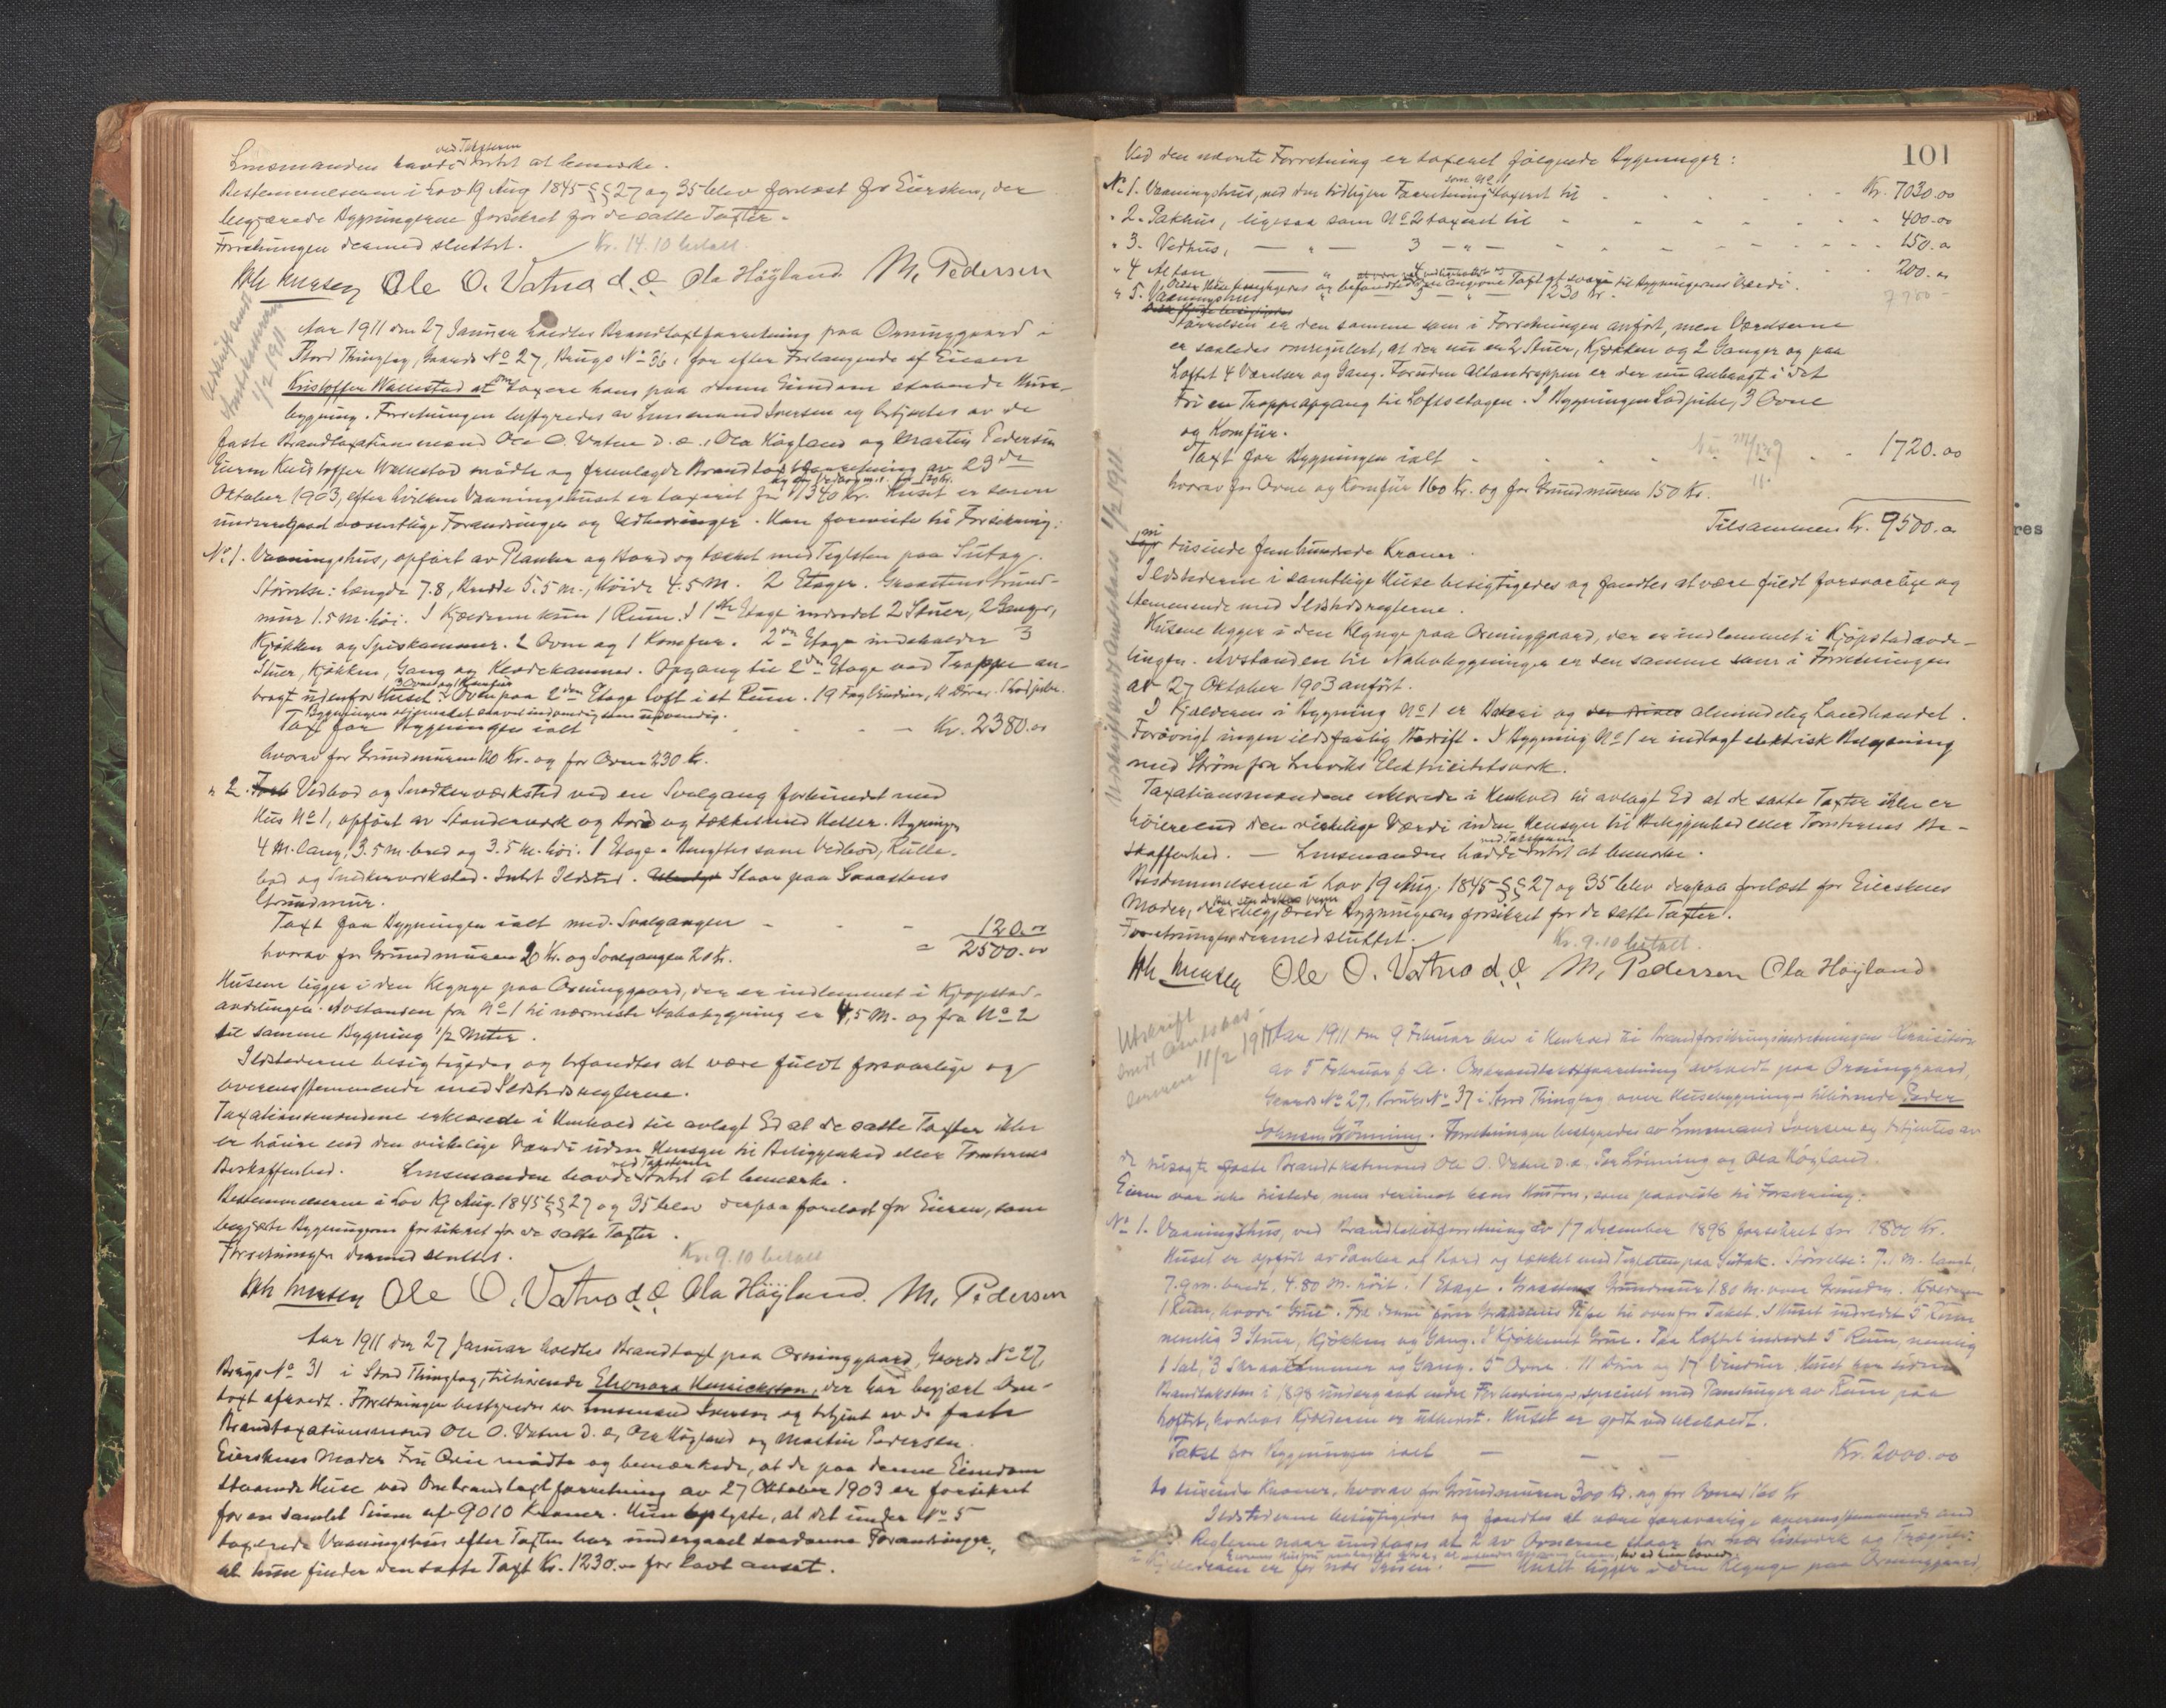 Lensmanden havde ved Taksterne intet at bemerke.
Bestemmelserne i Lov 19 Aug 1845 §§ 27 og 35 blev forelæst for Eiersken, der
begjærede Bygningerne forsikret for de satte Taxter.
Forretningen dermed sluttet. Kr. 14.10 betalt.
Ole O. Vatna d.æ. Ola Höyland M. Pedersen
Udskrift sendt
Amtskassereren
1/2 1911.
Aar 1911 den 27 Januar holdtes Brandtaxtforretning paa Orninggaard i
Stord Thinglag, Gaards No 27, Brugs No 36, for efter Forlangende af Eieren
Kristoffer Wallestad at omtaxere hans paa denne Eiendom staaende Huse-
bygning. Forretningen bestyredes av Lensmand Iversen og betjentes av de
faste Brandtaxationsmænd Ole O. Vatne d.æ., Ola Höyland og Martin Pedersen
Eieren Kristoffer Wallestad mødte og fremlagde Brandtaxtforretning av 23de
Oktober 1903, efter hvilken Vaaningshuset er taxeret for 1340 Kr. Huset er senere
undergaaet væsentlige Forandringer og Udbedringer. Han forviste til Forsikring:
No 1. Vaaningshus, opført av Planker og Bord og tækket med Teglsten paa Sutag.
Størrelse: længde 7.8, Bredde 5.5 m., Høide 4.5 M. 2 Etager. Graastens Grund-
mur 1.5 m. høi. I Kjælderen kun 1 Rum. I 1ste Etage indredet 2 Stuer, 2 Ganger,
Kjøkken og Spiskammer. 2 Ovne og 1 Komfur. 2den Etage indeholder 3
Stuer, Kjøkken, Gang og Klædekammer. Opgang til 2den Etage ved Trappe an-
bragt udenfor Huset. 3 Ovne og 1 Komfur paa 2den Etage Loft i et Rum. 19 Fag Vinduer, 11 Døre. 1 Lodpibe.
Taxt for Bygningen ialt - - - Kr. 2380.00
hvorav for Grundmuren 120 Kr. og for Ovne 230 Kr.
" 2. Vedbod og Snedkerværksted ved en Svalgang forbundet med
Hus No 1, opført av Stenderverk og Bord og tækket med Heller. Bygningen
4 M. lang, 3.5 m. bred og 3.5 M. høi. 1 Etage. Benyttes som Vedbod, Rulle-
bod og Snedkerverksted. Intet Ildsted. Staar paa Graastens
Grundmur.
Taxt paa Bygningen ialt med Svalgangen - - - 120.00
hvorav for Grundmuren 20 Kr. og Svalgangen 20 Kr. = 2500.00
Husene ligger i den Klynge paa Orninggaard, der er indlemmet i Kjøpstad-
avdelingen. Avstanden fra No 1 til nærmeste Nabobygning er 4,5 M. og fra No 2
til samme Bygning 1/2 Meter.
Ildstederne besigtigedes og befandtes at være fuldt forsvarlige og
overensstemmende med Ildstedsreglerne.
Taxationsmændene erklærede i Henhold til avlagt Ed at de satte Taxter ikke
er høiere end den virkelige Værdi uden Hensyn til Beliggenhed eller Tomternes
Beskaffenhed. Lensmanden havde ved Taksterne intet at bemerke.
Bestemmelserne i Lov 19 Aug. 1845 §§ 27 og 35 blev derpaa forelæst for Eieren, som
begjærte Bygningerne forsikret for de satte Taxter.
Forretningen dermed sluttet. Kr. 9.10 betalt
Ole O. Vatna d.æ. Ola Höyland. M. Pedersen
Aar 1911 den 27 Januar holdtes Brandtaxt paa Orninggaard, Gaards No 27,
Brugs No 31 i Stord Thinglag, tilhørende Eleonora Henricksson, der har begjært Om-
taxt afholdt. Forretningen bestyredes av Lensmand Iversen og betjent av de faste
Brandtaxationsmænd Ole O. Vatne d.æ, Ola Höyland og Martin Pedersen.
Eierskens Moder Fru Orie mødte og bemærkede, at de paa denne Eiendom
staaende Huse ved Ombrandtaxtforretning av 27 Oktober 1903 er forsikret
for en samlet Sum af 9010 Kroner. Hun oplyste, at det under No 5
taxerede Vaaningshus efter Taxten har undergaaet saadanne Forandringer,
at hun finder den satte Taxt Kr. 1230.00 for lavt ansat.
101
Ved den nævnte Forretning er taxeret følgende Bygninger:
No 1. Vaaningshus, ved den tidligere Forretning som No 1 taxeret til - - Kr. 7030.00
" 2. Pakhus, ligesaa som No 2 taxeret til - - 400.00
" 3. Vedhus, — " — 3 — " — - - 150.00
" 4 Altan — " 4 - - 200.00
Disse Huse besigtigedes og befandtes den angivne Taxt at svare til Bygningernes Værdi.
" 5. Vaaningshus " 5 — " — 1230 Kr. 7780 -
Størrelsen er den samme som i Forretningen anført, men Værelserne
er saaledes omreguleret, at der nu er 2 Stuer, Kjøkken og 2 Ganger og paa
Loftet 4 Værelser og Gang. Foruden Altantrappen er der nu anbragt i det
Fri en Trappeopgang til Loftsetagen. I Bygningen Lodpibe, 3 Ovne
og Komfur.
Taxt for Bygningen ialt - - - 1720.00
hvorav for Ovne og Komfür 160 Kr. og for Grundmuren 150 Kr.
Tilsammen Kr. 9500.00
ni tusinde fem hundrede Kroner.
Udskrift sendt Amtskass 1/2 1911.
Ildstederne i samtlige Huse besigtigedes og fandtes at være fuldt forsvarlige og
stemmende med Ildstedsreglerne.
Husene ligger i den Klynge paa Orninggaard, der er indlemmet i Kjøpstadavde-
lingen. Avstanden til Nabobygninger er den samme som i Forretningen
av 27 Oktober 1903 anført.
I Kjælderen i Bygning No 1 er Bakeri og almindelig Landhandel.
Forøvrigt ingen ildsfarlig Bedrift. I Bygning No 1 er indlagt elektrisk Belysning
med Strøm fra Lerviks Elektricitetsverk.
Taxationsmændene erklærede i Henhold til avlagt Ed at de satte Taxter ikke er
høiere end den virkelige Værdi uden Hensyn til Beliggenhed eller Tomternes Be-
skaffenhed. — Lensmanden hadde ved Taksterne intet at bemerke.
Bestemmelserne i Lov 19 Aug. 1845 §§ 27 og 35 blev derpaa forelæst for Eierskens
Moder, der paa sin Datters Vegne begjærede Bygningerne forsikret for de satte Taxter.
Forretningen dermed sluttet. Kr. 9.10 betalt.
Ole O. Vatna d.æ. M. Pedersen Ola Höyland
Utskrift
sendt Amtskas-
sereren 11/2 1911
Aar 1911 den 9 Februar blev i Henhold til Brandforsikringsindretningen Rekvisition
av 5 Februar f. A. Ombrandtaxtforretning avholdt paa Orninggaard,
Gaards No 27, Bruks No 37 i Stord Thinglag over Husebygninger tilhørende Peder
Johnsen Grönning. Forretningen bestyredes av Lensmand Iversen og betjentes av
de opnævnte faste Brandtakstmænd Ole O. Vatne d.æ. Per Lönning og Ola Höyland.
Eieren var ikke tilstede, men derimot hans Hustru, som paaviste til Forsikring:
No 1. Vaaningshus, ved Brandtakstforretning av 17 december 1898 forsikret for 1800 Kr.
Huset er opført av Planker og Bord og tækket med Teglsten paa Sutak. Størrelse: 7.1 M. langt,
7.9 m. bredt, 4.80 M. höit. 1 Etage. Graastens Grundmur 1.80 M. over Grunden. Kjælderen
1 Rum, hvori Grue. Fra denne fører Pibe til ovenfor Taket. I Huset indredet 5 Rum
nemlig 3 Stuer, Kjøkken og Gang. I Kjøkkenet Grue. Paa Loftet indredet 5 Rum, nemlig
1 Sal, 3 Skraakammer og Gang. 5 Ovne. 11 Døre og 17 Vinduer. Huset har siden
Brandtaksten i 1898 undergaaet endel Forbedringer, specielt med Panelinger av Rum paa
Loftet, hvorhos Kjælderen er utbedret. Huset er godt vedlikeholdt.
Takst for Bygningen ialt — — - Kr. 2000.00
to tusinde Kroner, hvorav for Grundmuren 300 Kr. og for Ovne 160 Kr
Ildstederne besigtigedes og fandtes at være forsvarlige overensstemmende med
Reglerne naar undtages at 2 av Ovnene staar for nær Listverk og
Kjælderen er for nær Gruen. — Huset ligger i den Klynge paa Orninggaard,
res